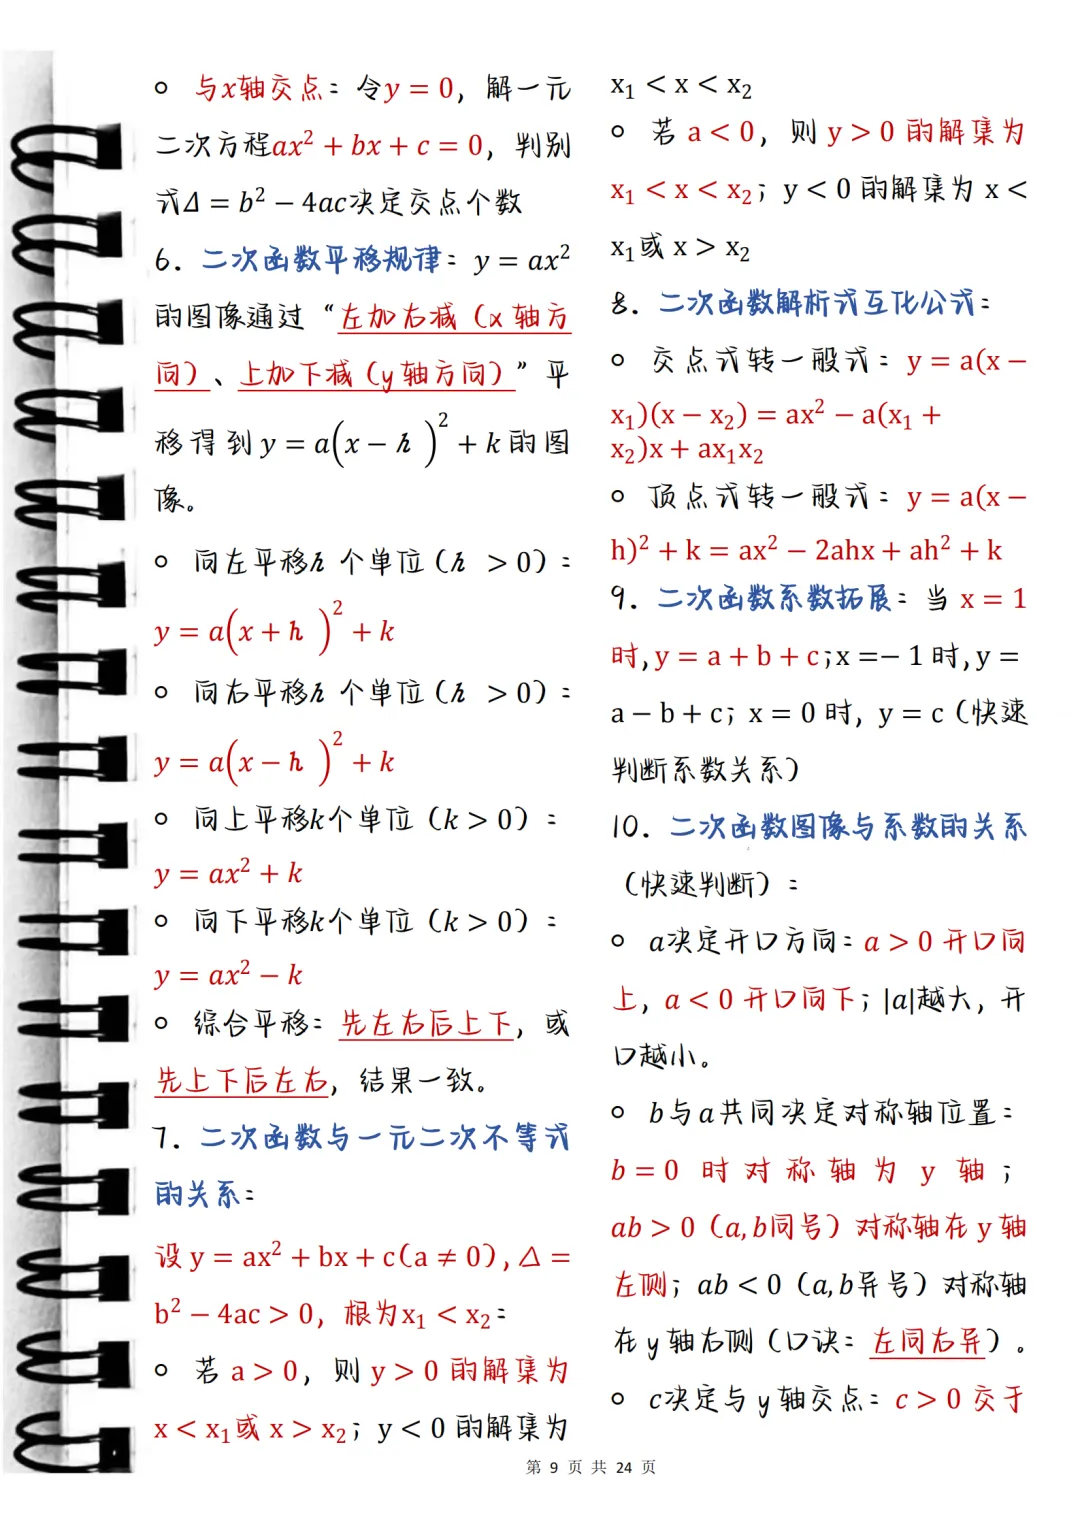 ○ 与x轴交点：令y = 0，解一元
二次方程ax² + bx + c = 0，判别
式Δ = b² − 4ac决定交点个数
6. 二次函数平移规律：y = ax²
的图像通过“左加右减（x 轴方
向）、上加下减（y 轴方向）”平
移得到 y = a(x − h )² + k 的图
像。
○ 向左平移h 个单位（h > 0）：
y = a(x + h )² + k
○ 向右平移h 个单位（h > 0）：
y = a(x − h )² + k
○ 向上平移k个单位（k > 0）：
y = ax² + k
○ 向下平移k个单位（k > 0）：
y = ax² − k
○ 综合平移：先左右后上下，或
先上下后左右，结果一致。
7. 二次函数与一元二次不等式
的关系：
设 y = ax² + bx + c(a ≠ 0)，△ =
b² − 4ac > 0，根为x₁ < x₂：
○ 若 a > 0，则 y > 0 的解集为
x < x₁或 x > x₂；y < 0 的解集为
x₁ < x < x₂
○ 若 a < 0，则 y > 0 的解集为
x₁ < x < x₂；y < 0 的解集为 x <
x₁或 x > x₂
8. 二次函数解析式互化公式：
○ 交点式转一般式：y = a(x −
x₁)(x − x₂) = ax² − a(x₁ +
x₂)x + ax₁x₂
○ 顶点式转一般式：y = a(x −
h)² + k = ax² − 2ahx + ah² + k
9. 二次函数系数拓展：当 x = 1
时,y = a + b + c;x =− 1 时,y =
a − b + c；x = 0 时，y = c（快速
判断系数关系）
10. 二次函数图像与系数的关系
（快速判断）：
○ a决定开口方向：a > 0 开口向
上，a < 0 开口向下；|a|越大，开
口越小。
○ b与a共同决定对称轴位置：
b = 0 时对称轴为 y 轴；
ab > 0（a, b同号）对称轴在 y 轴
左侧；ab < 0（a, b异号）对称轴
在 y 轴右侧（口诀：左同右异）。
○ c决定与 y 轴交点：c > 0 交于
第 9 页 共 24 页